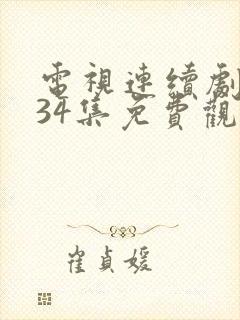 電視連續劇
34集免費觀
崔貞媛